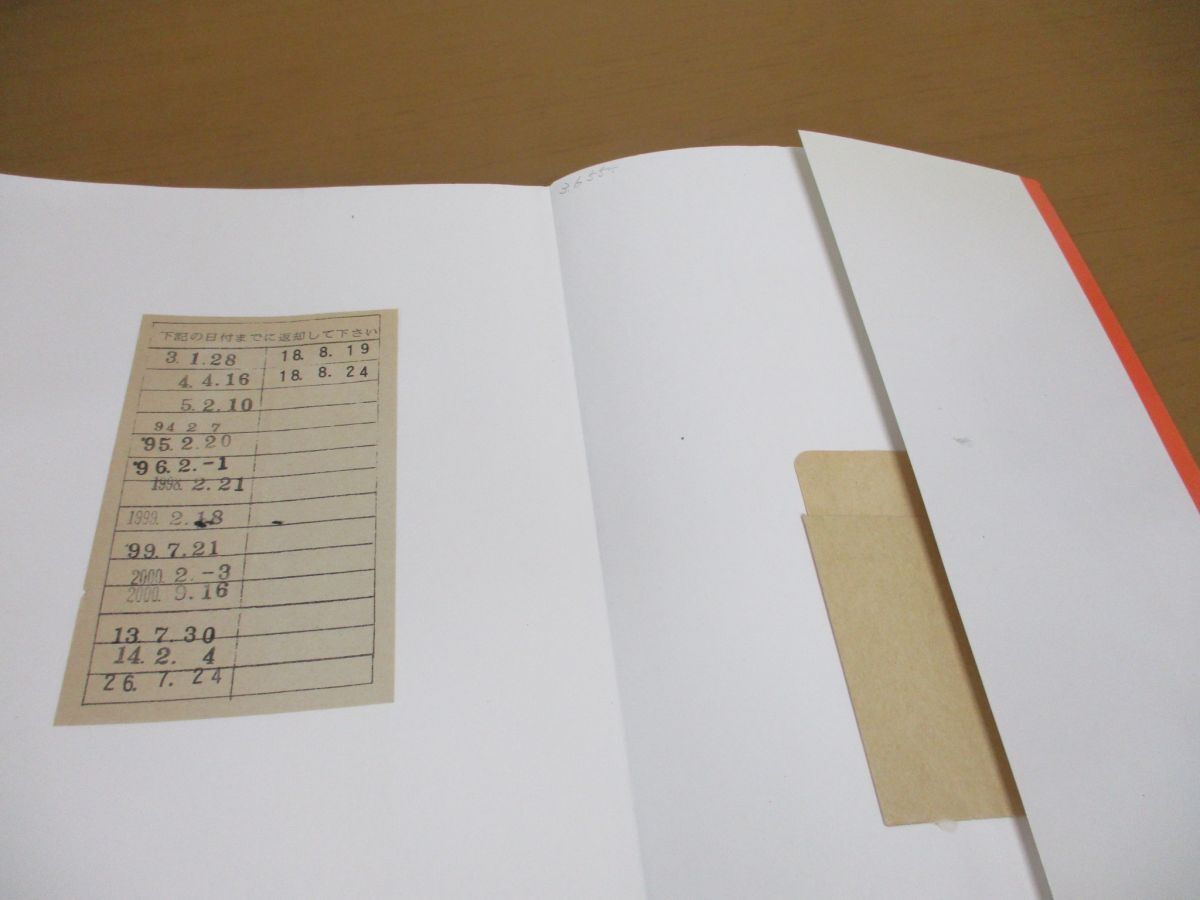 3.655-
下記の日付までに返却して下さい
3.1.28
4.4.16
5.2.10
94 2 7
'95.2.20
'96.2.-1
1998. 2.21
1999. 2.18
'99.7.21
2000. 2.-3
2000. 9.16
13.7.30
14.2. 4
26. 7. 24
18. 8. 19
18. 8. 24